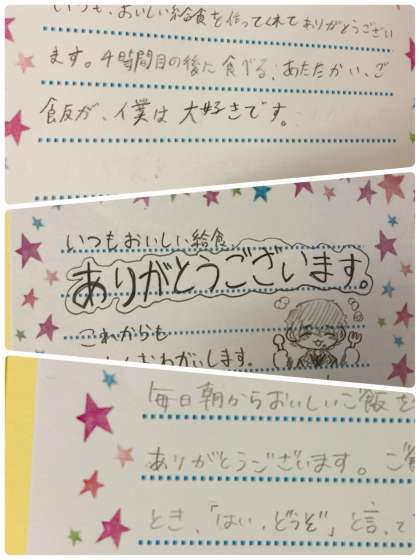 いつも、おいしい給食を作ってくれてありがとうござい
ます。4時間目の後に食べる、あたたかい、ご
飯が、僕は大好きです。
いつもおいしい給食
ありがとうございます。
これからも
おねがいします。
毎日朝からおいしいご飯を
ありがとうございます。ご
とき、「はい、どうぞ」と言って